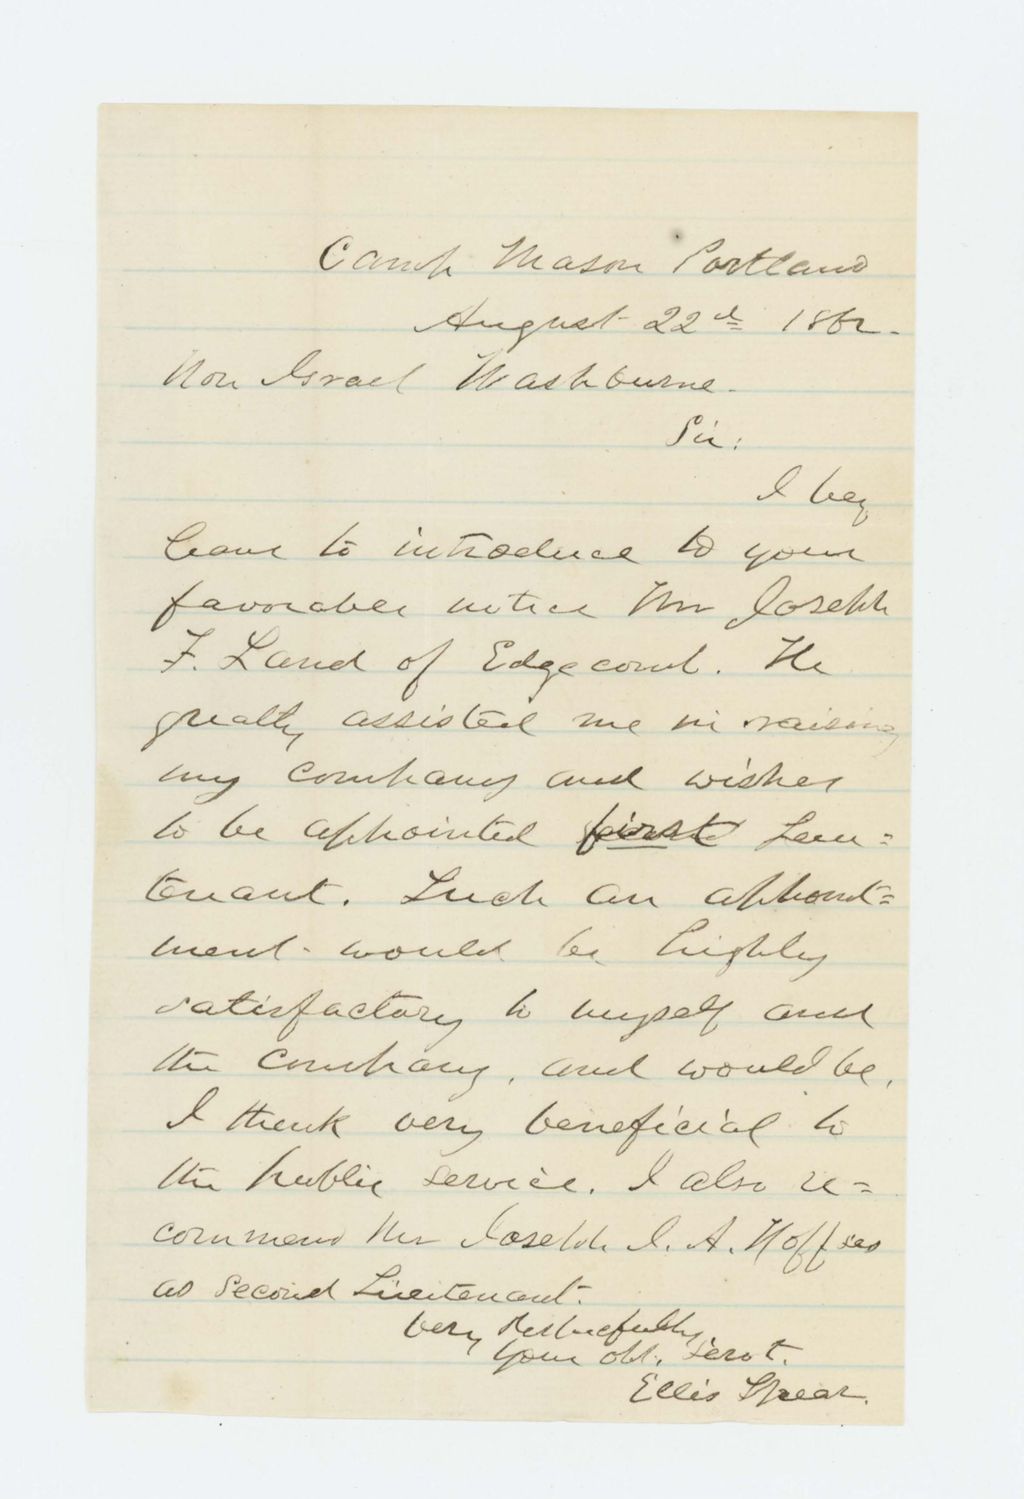 Camp Mason Portland
August 22d 1862.
Hon Israel Washburne.
Sir:
I beg
leave to introduce to your
favorable notice Mr Joseph
F. Land of Edgecomb. He
greatly assisted me in raising
my company and wishes
to be appointed first Lieu=
tenant. Such an appoint=
ment would be highly
satisfactory to myself and
the company, and would be,
I think very beneficial to
the public service. I also re=
commend Mr Joseph I. A. Hoffses
as Second Lieutenant.
Very Respectfully,
Your obt. Servt.
Ellis Spear.